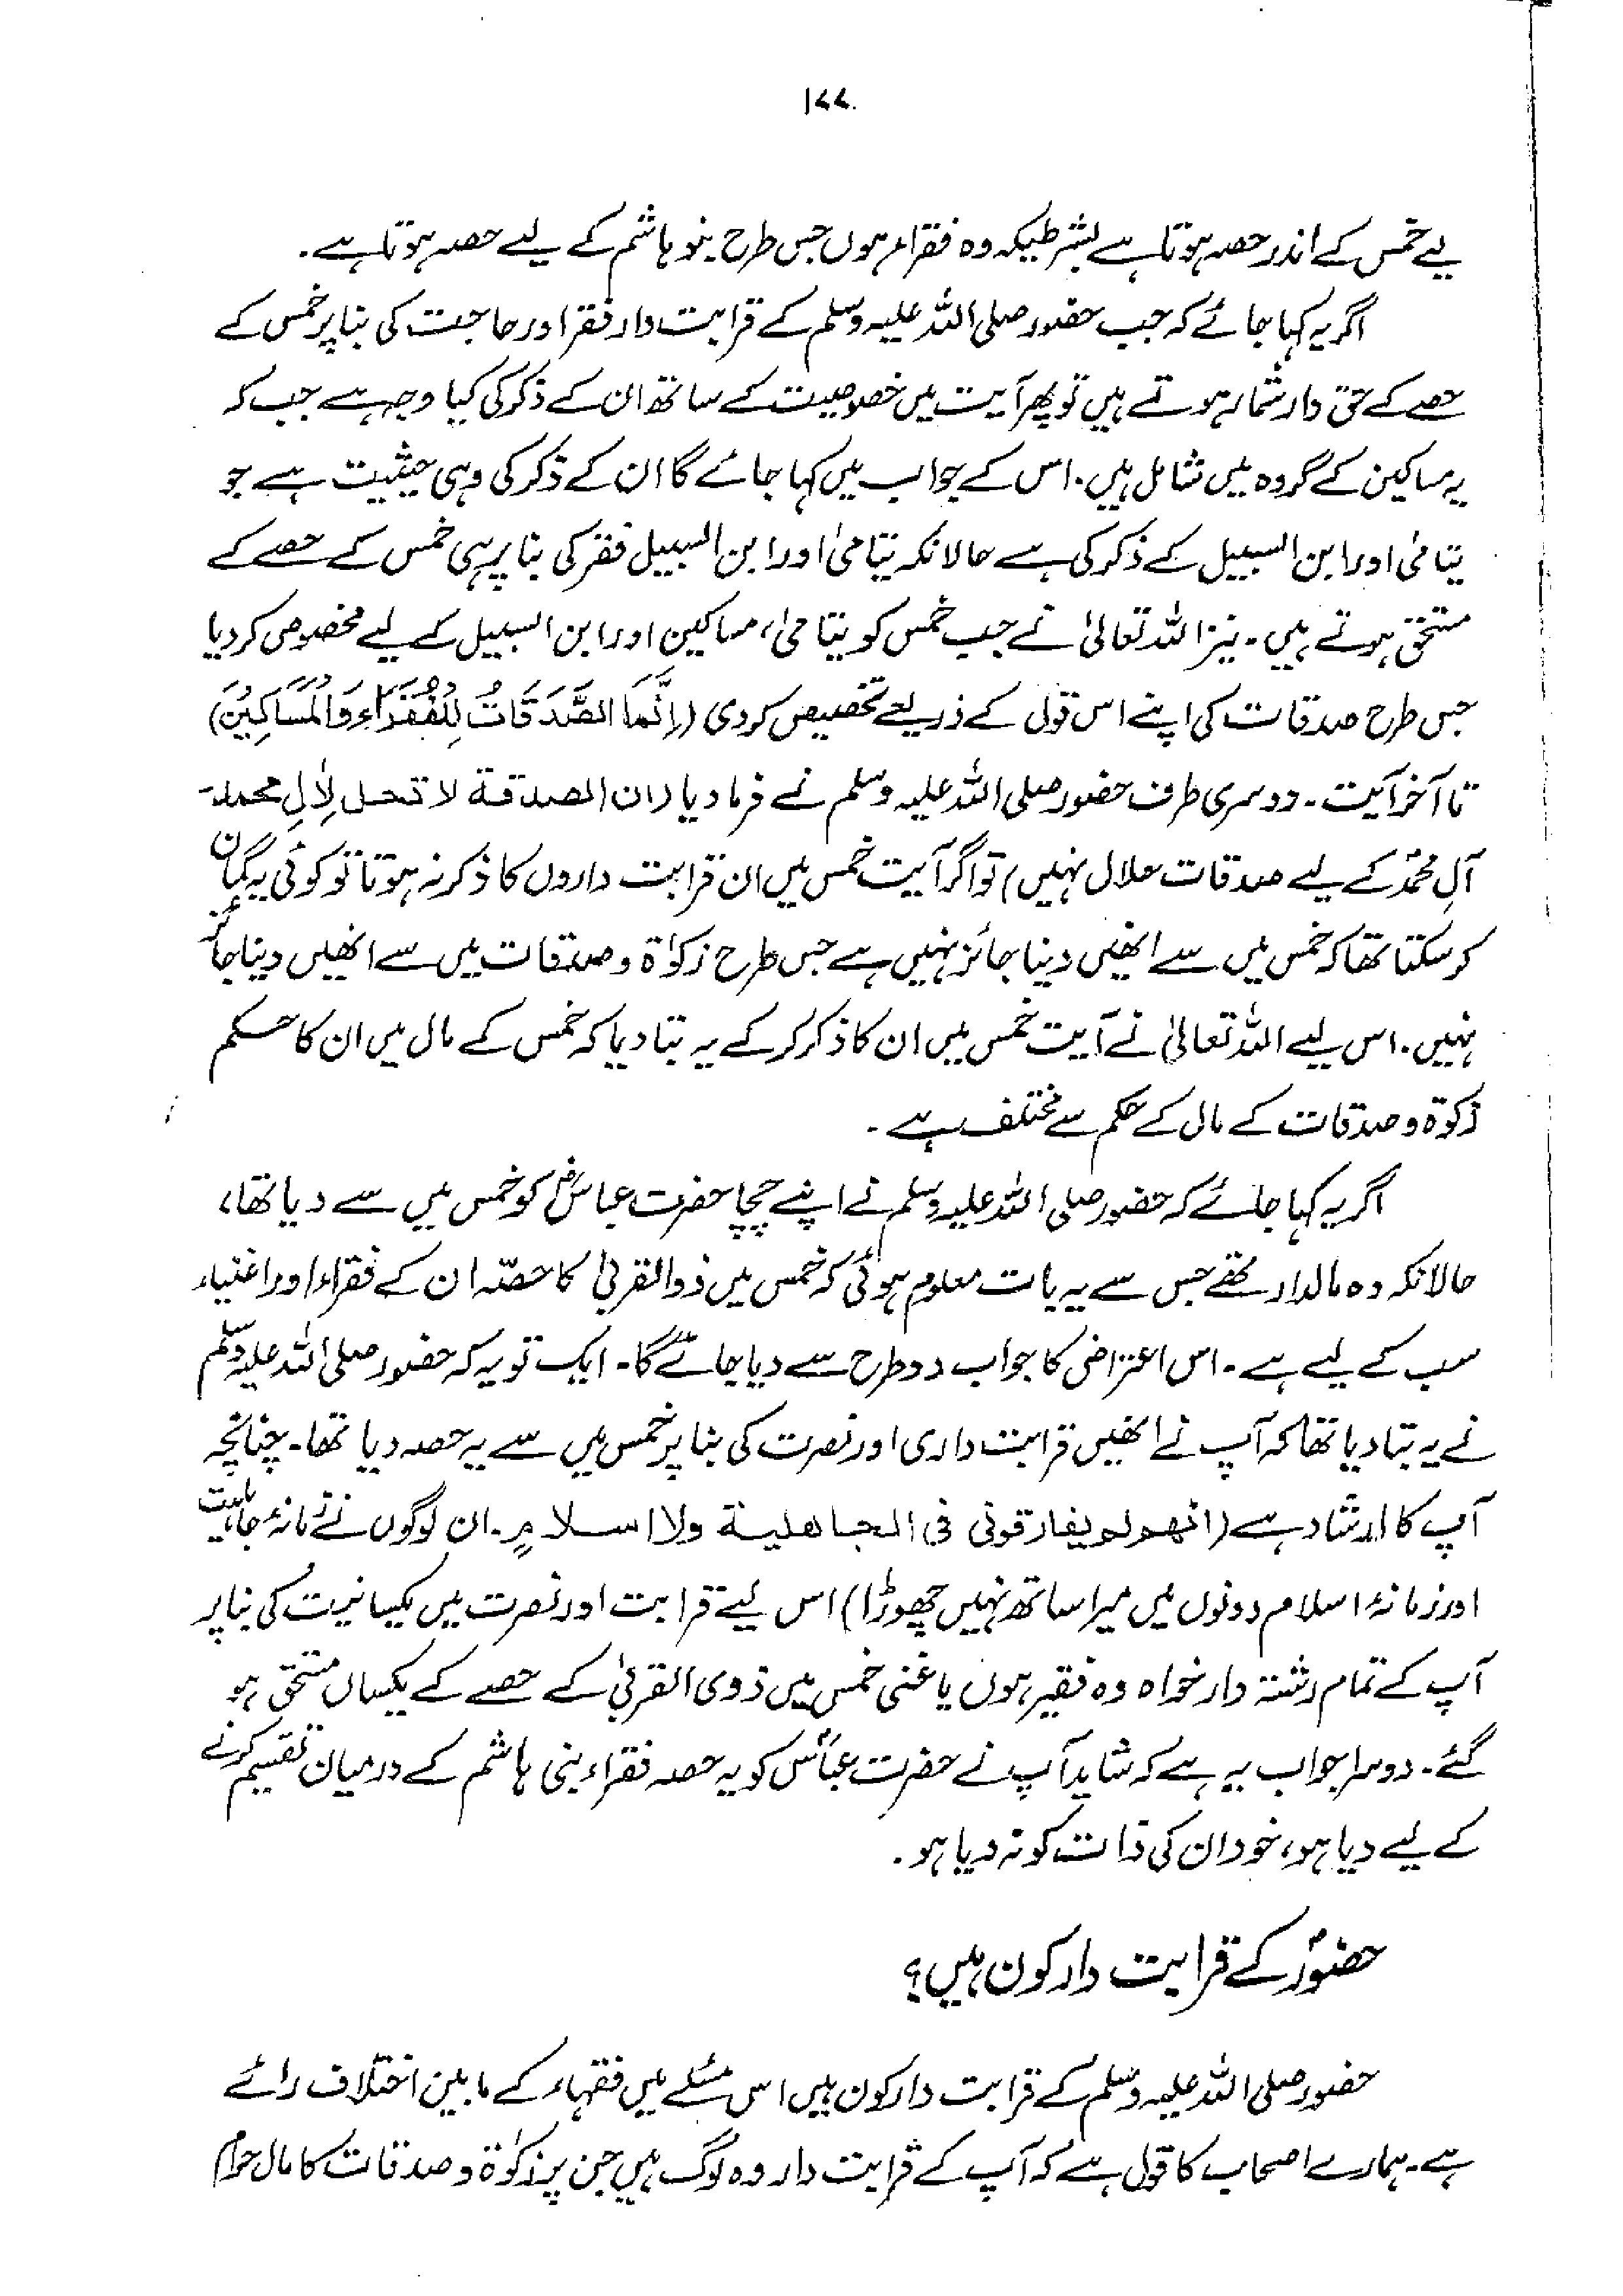 ۱۷۷
لیے خمس کے اندر حصہ ہوتا ہے بشرطیکہ وہ فقراء ہوں جس طرح بنو ہاشم کے لیے حصہ ہوتا ہے۔
اگر یہ کہا جائے کہ جب حضور صلی اللہ علیہ وسلم کے قرابت دار فقر اور حاجت کی بنا پر خمس کے
حصے کے حق دار شمار ہوتے ہیں تو پھر آیت میں خصوصیت کے ساتھ ان کے ذکر کی کیا وجہ ہے جب کہ
یہ مساکین کے گروہ میں شامل ہیں۔ اس کے جواب میں کہا جائے گا ان کے ذکر کی وہی حیثیت ہے جو
یتامیٰ اور ابن السبیل کے ذکر کی ہے حالانکہ یتامیٰ اور ابن السبیل فقر کی بنا پر ہی خمس کے حصے کے
مستحق ہوتے ہیں۔ نیز اللہ تعالیٰ نے جب خمس کو یتامیٰ، مساکین اور ابن السبیل کے لیے مخصوص کر دیا
جس طرح صدقات کی اپنے اس قول کے ذریعے تخصیص کر دی (إِنَّمَا الصَّدَقَاتُ لِلْفُقَرَاءِ وَالْمَسَاكِينَ)
تا آخر آیت۔ دوسری طرف حضور صلی اللہ علیہ وسلم نے فرما دیا (ان الصدقة لا تحل لِاٰلِ محمد۔
آلِ محمدؐ کے لیے صدقات حلال نہیں) تو اگر آیت خمس میں ان قرابت داروں کا ذکر نہ ہوتا تو کوئی یہ گمان
کر سکتا تھا کہ خمس میں سے انھیں دینا جائز نہیں ہے جس طرح زکوٰۃ و صدقات میں سے انھیں دینا جائز
نہیں۔ اس لیے اللہ تعالیٰ نے آیت خمس میں ان کا ذکر کر کے یہ بتا دیا کہ خمس کے مال میں ان کا حکم
زکوٰۃ و صدقات کے مال کے حکم سے مختلف ہے۔
اگر یہ کہا جائے کہ حضور صلی اللہ علیہ وسلم نے اپنے چچا حضرت عباسؓ کو خمس میں سے دیا تھا،
حالانکہ وہ مالدار تھے جس سے یہ بات معلوم ہوئی کہ خمس میں ذوالقربیٰ کا حصّہ ان کے فقراء اور اغنیاء
سب کے لیے ہے۔ اس اعتراض کا جواب دو طرح سے دیا جائے گا۔ ایک تو یہ کہ حضور صلی اللہ علیہ وسلم
نے یہ بتا دیا تھا کہ آپ نے انھیں قرابت داری اور نصرت کی بنا پر خمس میں سے یہ حصہ دیا تھا۔ چنانچہ
آپ کا ارشاد ہے (انهم لم يفارقونی فی الجاهلية ولا اسلامٍ۔ ان لوگوں نے زمانۂ جاہلیت
اور زمانۂ اسلام دونوں میں میرا ساتھ نہیں چھوڑا) اس لیے قرابت اور نصرت میں یکسانیت کی بنا پر
آپ کے تمام رشتہ دار خواہ وہ فقیر ہوں یا غنی خمس میں ذوی القربیٰ کے حصے کے یکساں مستحق ہو
گئے۔ دوسرا جواب یہ ہے کہ شاید آپ نے حضرت عباسؓ کو یہ حصہ فقراء بنی ہاشم کے درمیان تقسیم کرنے
کے لیے دیا ہو، خود ان کی ذات کو نہ دیا ہو۔
حضورؐ کے قرابت دار کون ہیں؟
حضور صلی اللہ علیہ وسلم کے قرابت دار کون ہیں اس مسئلے میں فقہاء کے مابین اختلاف رائے
ہے۔ ہمارے اصحاب کا قول ہے کہ آپ کے قرابت دار وہ لوگ ہیں جن پر زکوٰۃ و صدقات کا مال حرام